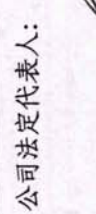 公司法定代表人：